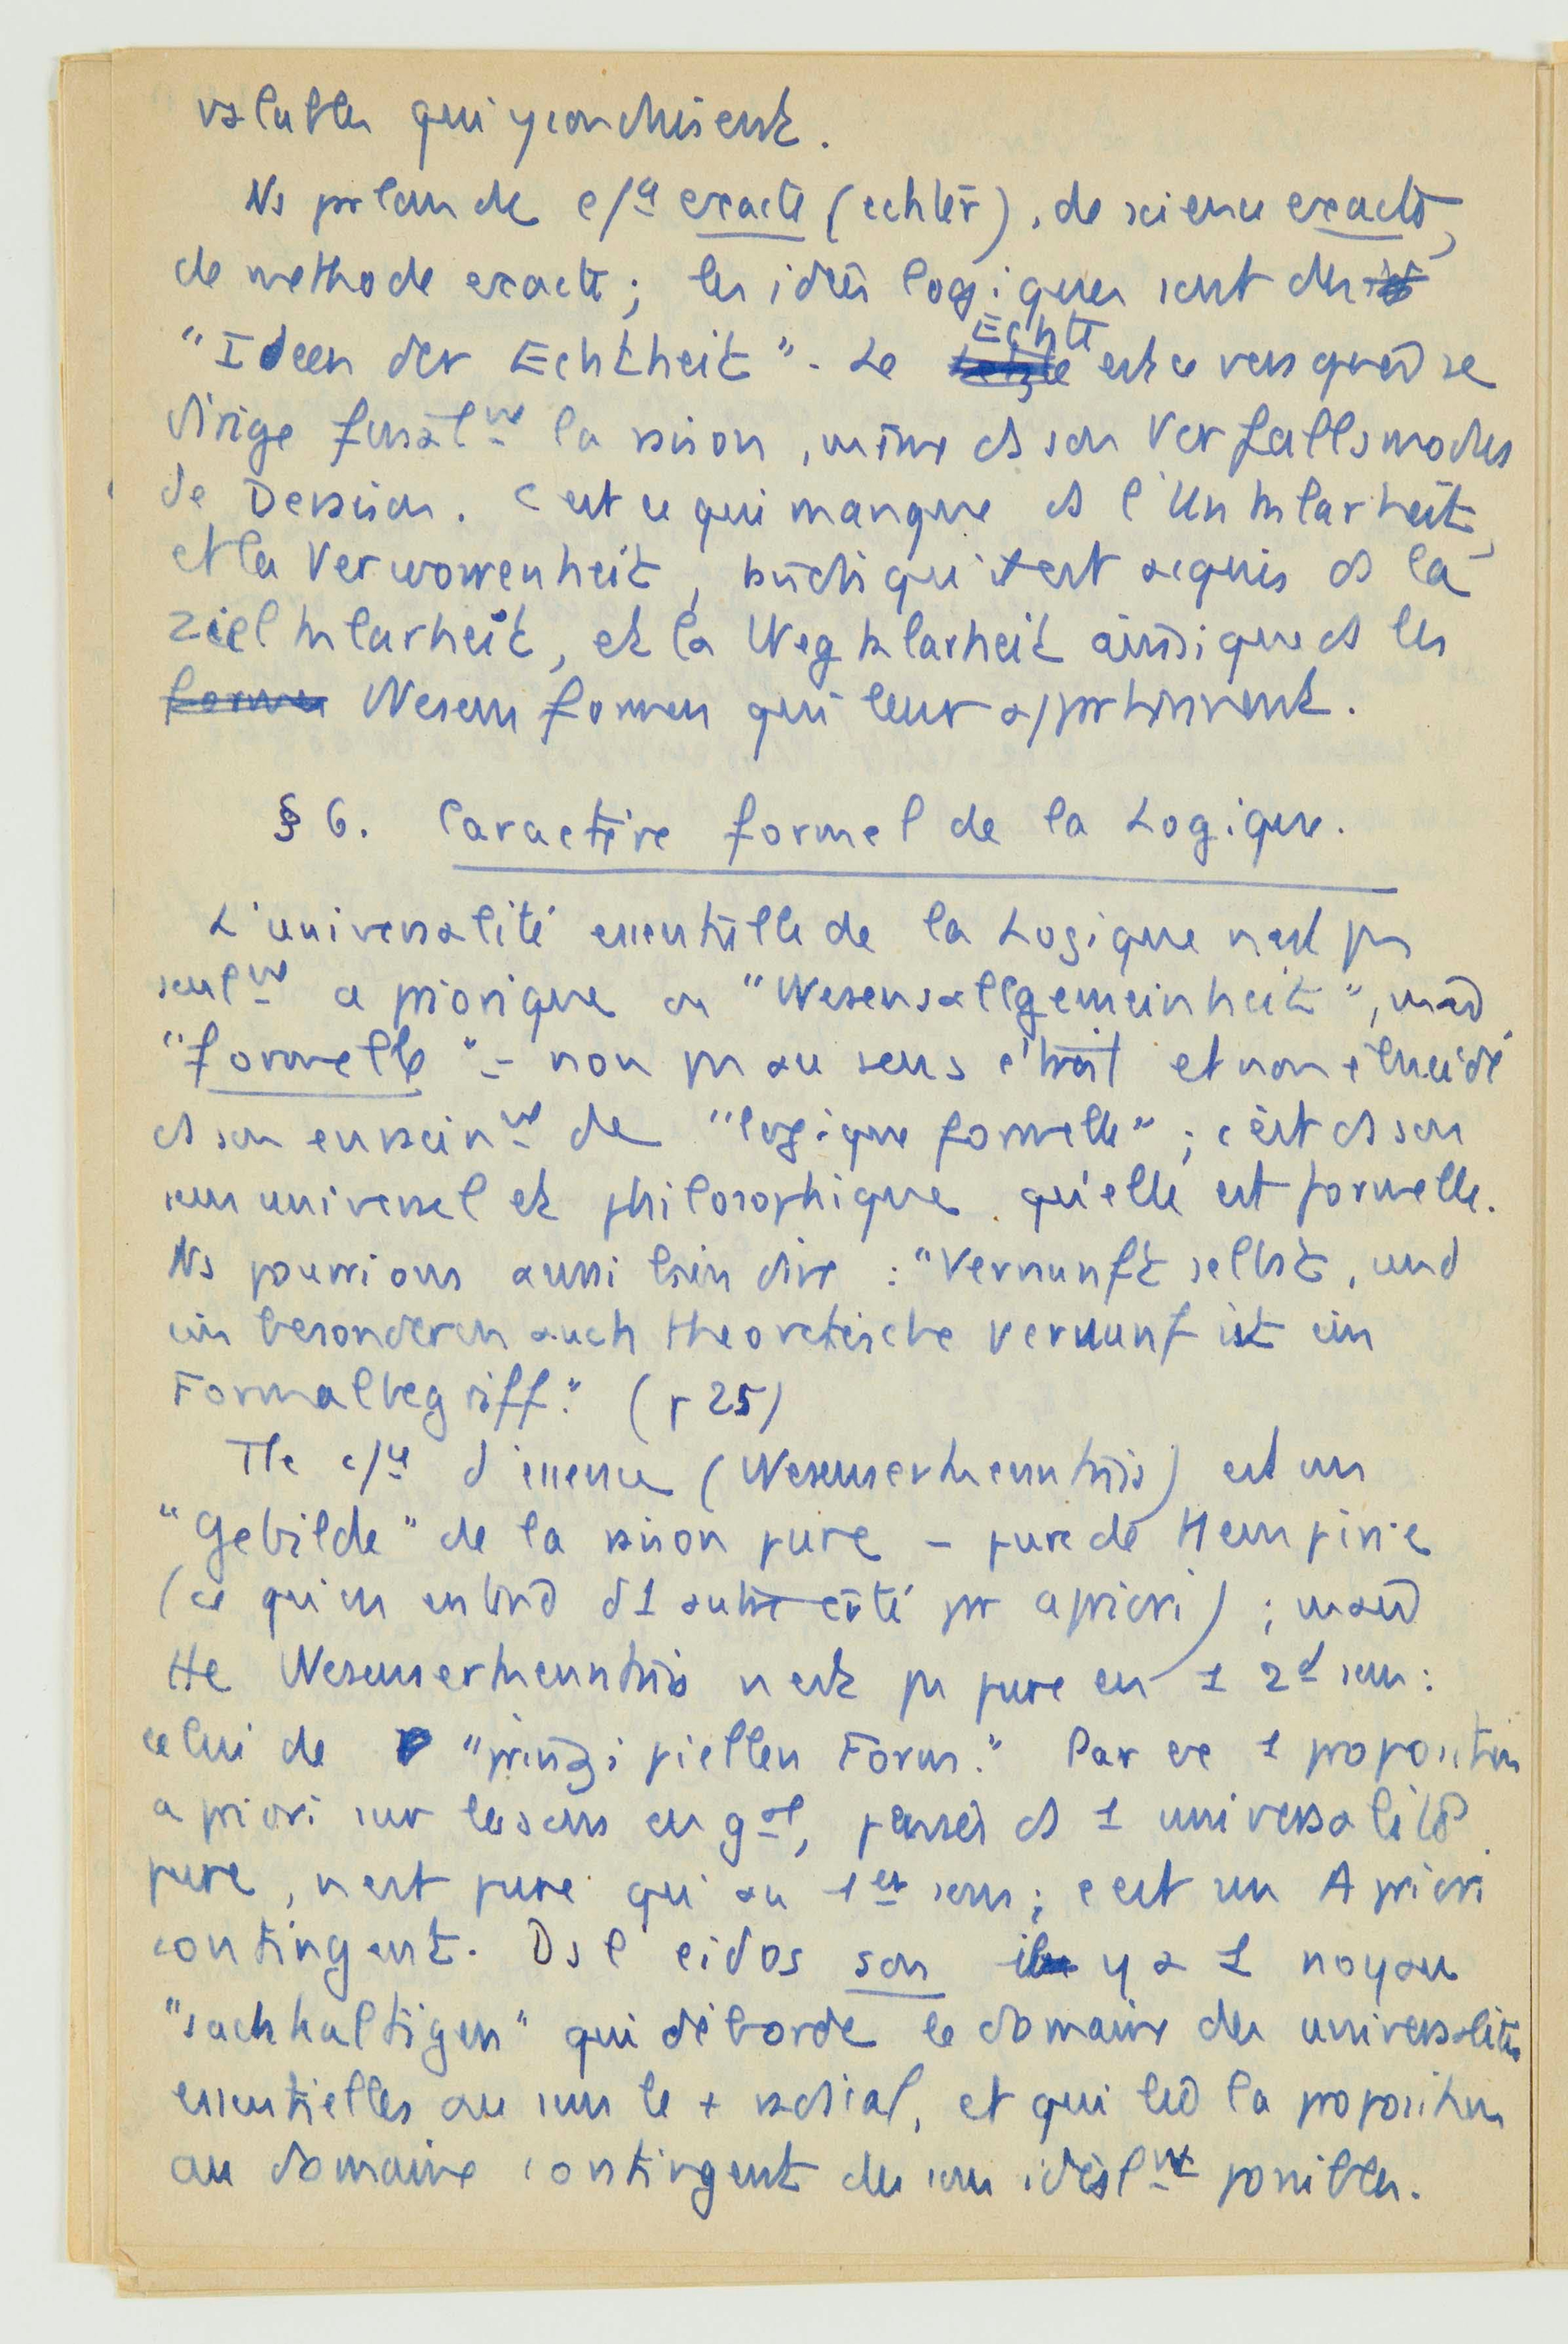 valables qui y conduisent.
Ns parlons de c/ce exacte (echter), de science exacte,
de methode exacte; les idées logiques sont des
"Ideen der Echtheit". Le Echte est ce vers quoi se
dirige finalmt la raison, même ds son Verfallsmodus
de Deraison. C'est ce qui manque ds l'Unklarheit,
et la Verworrenheit, tandis qu'il est acquis ds la
Zielklarheit, et la Wegklarheit ainsi que ds les
formes Wesensformen qui leur appartiennent.
§ 6. Caractère formel de la Logique.
L'universalité essentielle de la Logique n'est pas
seulmt a priorique ou "Wesensallgemeinheit", mais
"formelle" - non pas au sens étroit et non élucidé
ds son enseignmt de "logique formelle"; c'est ds son
sens universel et philosophique qu'elle est formelle.
Ns pourrions aussi bien dire : "Vernunft selbst, und
im besonderen auch theoretische Vernunf ist ein
Formalbegriff." (p 25)
Tte c/ce d'essence (Wesenserkenntnis) est un
"Gebilde" de la raison pure - pure de tt empirie
(ce qu'on entend d'1 autre côté pr a priori) ; mais
tte Wesenserkenntnis n'est pas pure en 1 2d sens :
celui de "prinzipiellen Form." Par ex 1 proposition
a priori sur les sons en gal, pensés ds 1 universalité
pure, n'est pure qu'au 1er sens; c'est un A priori
contingent. Ds l'eidos son il y a 1 noyau
"sachhaltigen" qui déborde le domaine des universalités
essentielles au sens le + radial, et qui lie la proposition
au domaine contingent des sons idéalmt possibles.